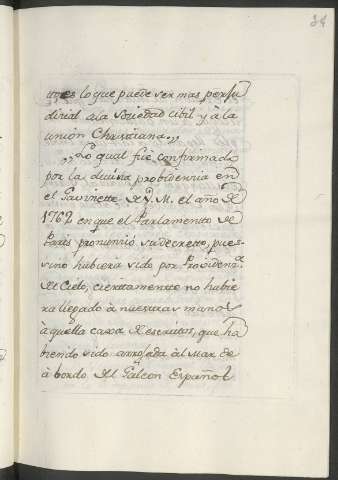 34
es lo que puede ser mas perju
dicial ala Sociedad cibil y à la
union Christiana,,
,,Lo qual fue confirmado
por la divina probidencia en
el Gavinette de V. M. el año de
1762 en que el Parlamento de
Paris pronunció su decretto, pues
sino hubiera sido por Providenª
del Cielo, ciertamente no hubie
ra llegado à nuestras manos
aquella caxa de escritos, que ha
biendo sido arrojada àl Mar de
à bordo del Galeon Español